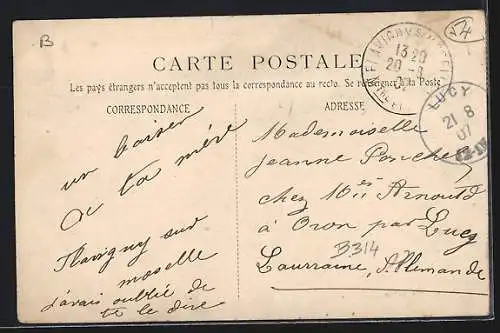 B
V4
CARTE POSTALE
Les pays étrangers n'acceptent pas tous la correspondance au recto. Se renseigner à la Poste
CORRESPONDANCE
ADRESSE
FLAVIGNY S/ MOSELLE
13 20
20 - 8
07
LUCY
21 8
07
un baiser
a ta mère
Flavigny sur
moselle
j'avais oublié de
te le dire
Mademoiselle
Jeanne
chez Arnould
à Oron par Lucy
B314
Laurraine, Allemande